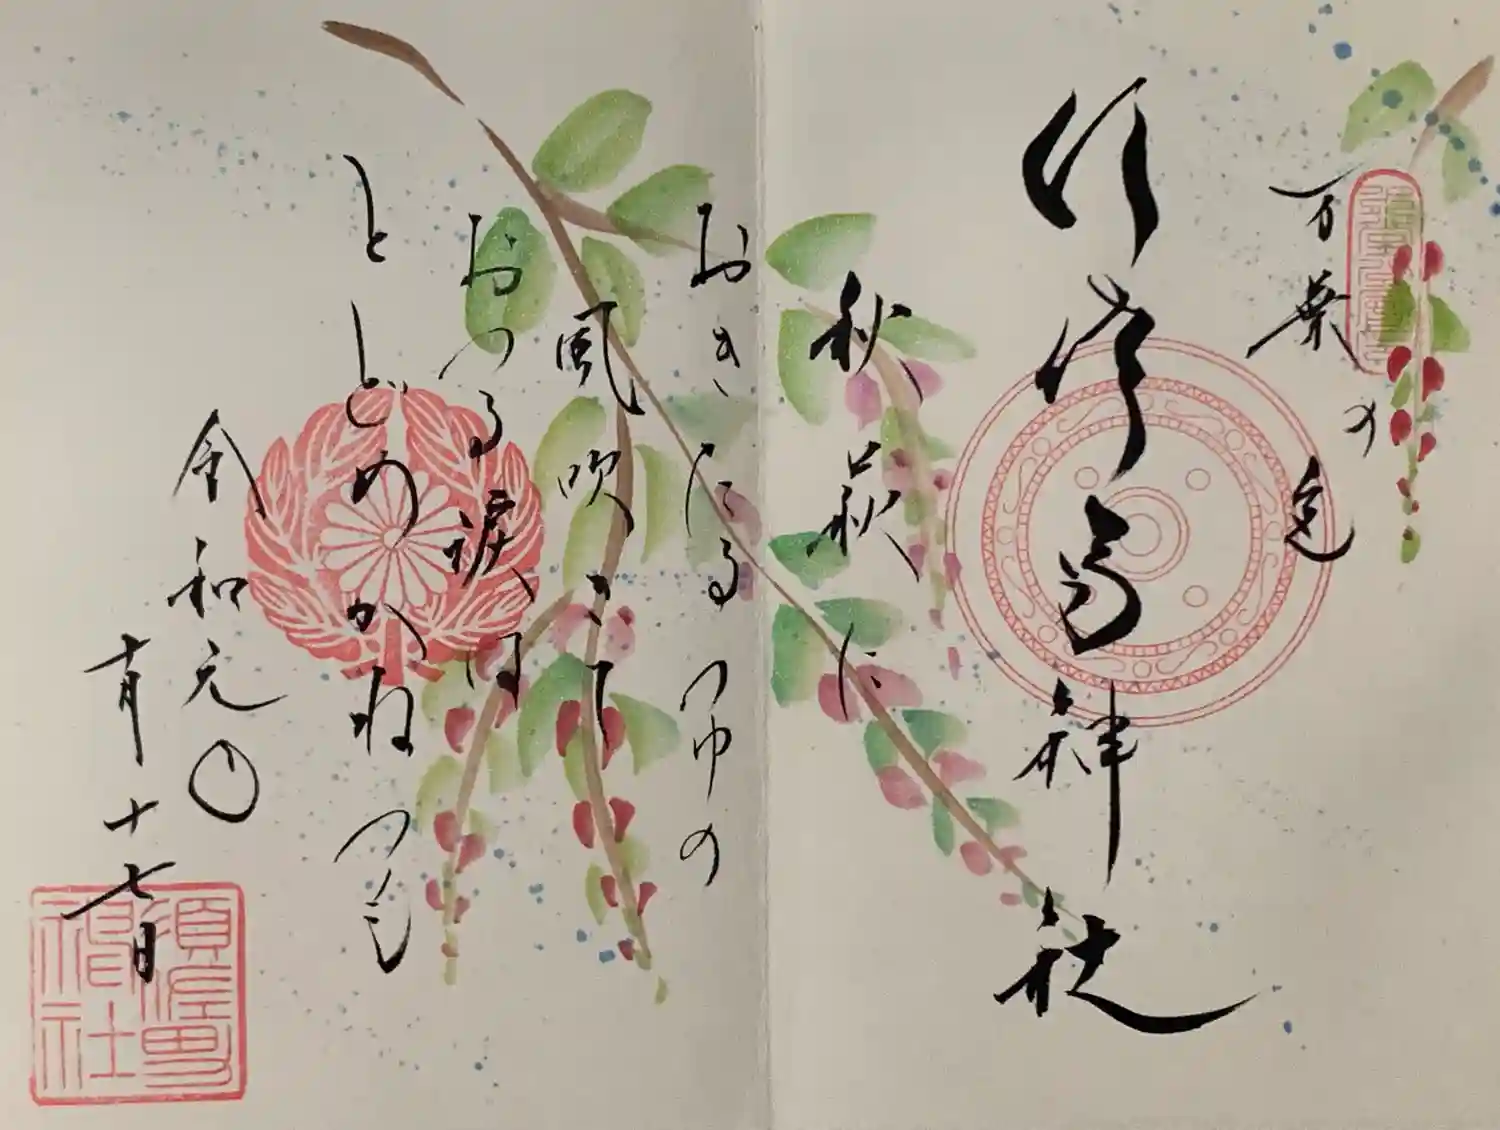 万葉の
須佐男神社
秋萩に
おきたるつゆの
風吹きて
おつる涙は
とどめかねつも
令和元年
十月十七日
須佐男
神社